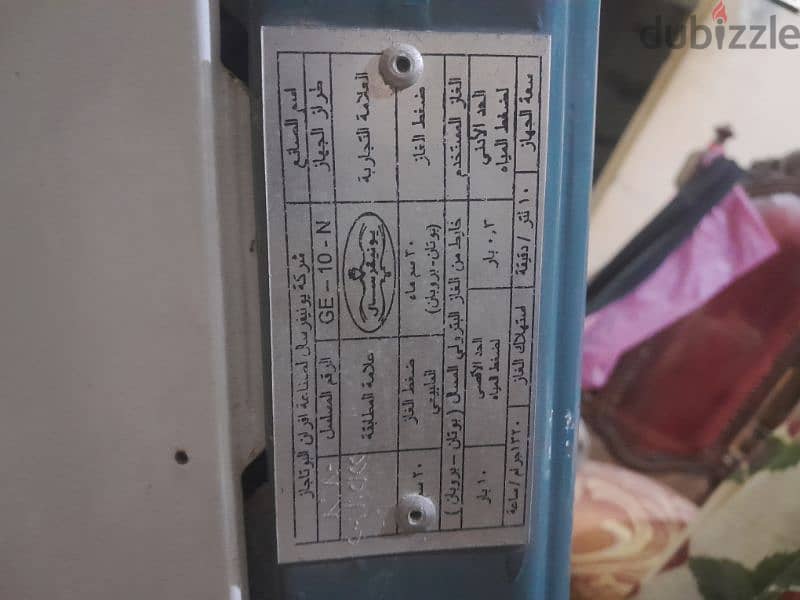 dubizzle
اسم الصانع شركة يونيفرسال لصناعة افران البوتاجاز
طراز الجهاز GE – 10 – N الرقم المسلسل
العلامة التجارية يونيفرسال علامة المطابقة
ضغط الغاز ٣٠ سم ماء (بوتان-بروبان) ضغط الغاز الطبيعي ٢٠
الغاز المستخدم خليط من الغاز البترولي المسال ( بوتان – بروبان )
الحد الأدنى لضغط المياه ٠,٣ بار الحد الأقصى لضغط المياه ١٠ بار
سعة الجهاز ١٠ لتر / دقيقة استهلاك الغاز جرام / ساعة